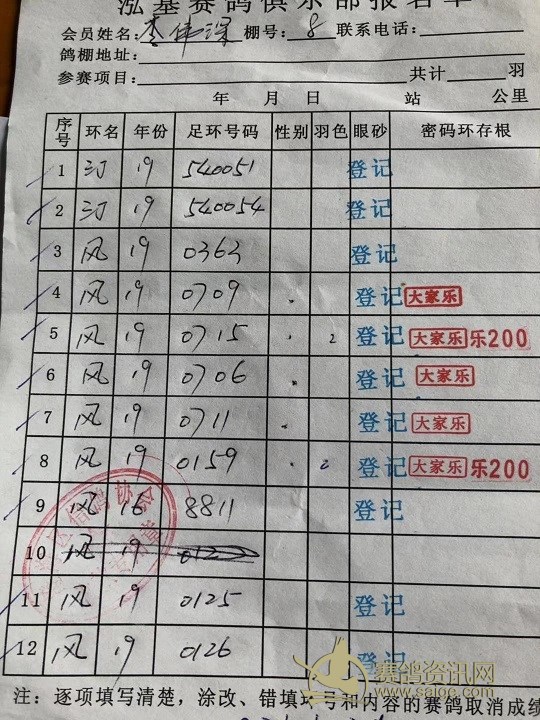 泓基赛鸽俱乐部报名单
会员姓名: 李伟深 棚号: 8 联系电话:
鸽棚地址:
参赛项目: 共计 羽
年 月 日 站 公里
序号 环名 年份 足环号码 性别 羽色 眼砂 密码环存根
1 汀 19 540051 登记
2 汀 19 540054 登记
3 风 19 0363 登记
4 风 19 0709 登记 大家乐
5 风 19 0715 2 登记 大家乐 乐200
6 风 19 0706 登记 大家乐
7 风 19 0711 登记 大家乐
8 风 19 0159 2 登记 大家乐 乐200
9 风 16 8811 登记
10 风 19
11 风 19 0125 登记
12 风 19 0126 登记
信鸽协会
赛鸽资讯网
www.saige.com
注: 逐项填写清楚, 涂改、错填环号和内容的赛鸽取消成绩